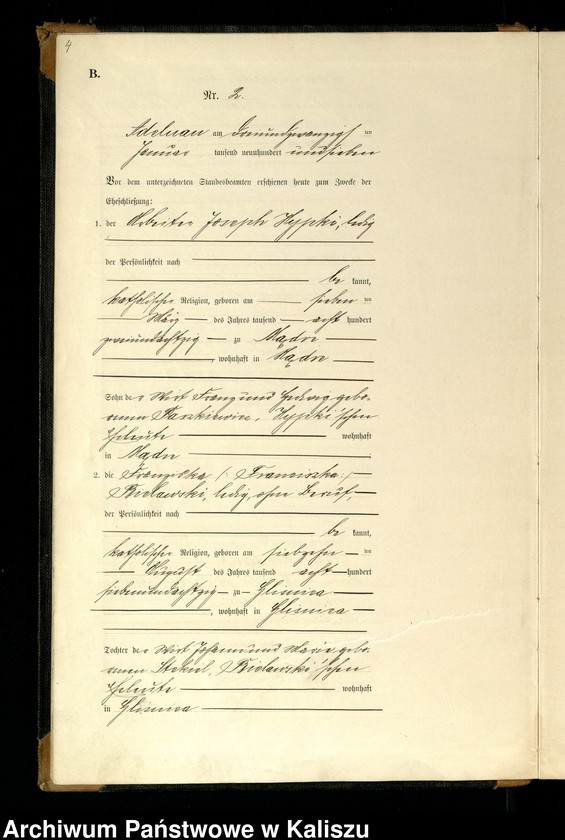 4
B.
Nr. 2.
Adelnau am dreiundzwanzigsten
Januar tausend neunhundert undsieben
Vor dem unterzeichneten Standesbeamten erschienen heute zum Zwecke der
Eheschließung:
1. der Arbeiter Joseph Hypki, ledig
der Persönlichkeit nach
be kannt,
katholischer Religion, geboren am sieben ten
März des Jahres tausend acht hundert
zweiundachtzig zu Mądre
, wohnhaft in Mądre
Sohn des Wirt Franz und Hedwig gebo-
renen Staszkiewicz, Hypki'schen
Eheleute wohnhaft
in Mądre
2. die Franziska (: Franciszka :)
ledig, ohne Beruf,
der Persönlichkeit nach
be kannt,
katholischer Religion, geboren am siebzehn ten
August des Jahres tausend acht hundert
siebenundachtzig zu Glisnica
, wohnhaft in Glisnica
Tochter des Wirt Johann und Marie gebo-
renen
Eheleute wohnhaft
in Glisnica
Archiwum Państwowe w Kaliszu